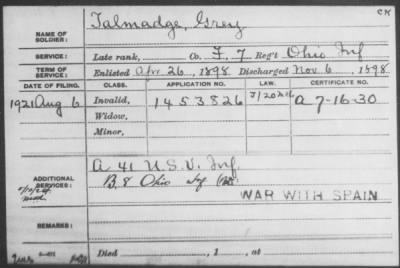 CK
NAME OF SOLDIER: Talmadge, Grey
SERVICE: Late rank, Co. F, 7 Reg't Ohio Inf
TERM OF SERVICE: Enlisted Apr 26, 1898 Discharged Nov 6, 1898
DATE OF FILING. CLASS. APPLICATION NO. LAW. CERTIFICATE NO.
1921 Aug 6 Invalid, 1453826 A 7-16-30
Widow,
Minor,
ADDITIONAL SERVICES: A 41 U.S.V. Inf.
B. 8 Ohio Inf
WAR WITH SPAIN
REMARKS:
Died , 1 , at